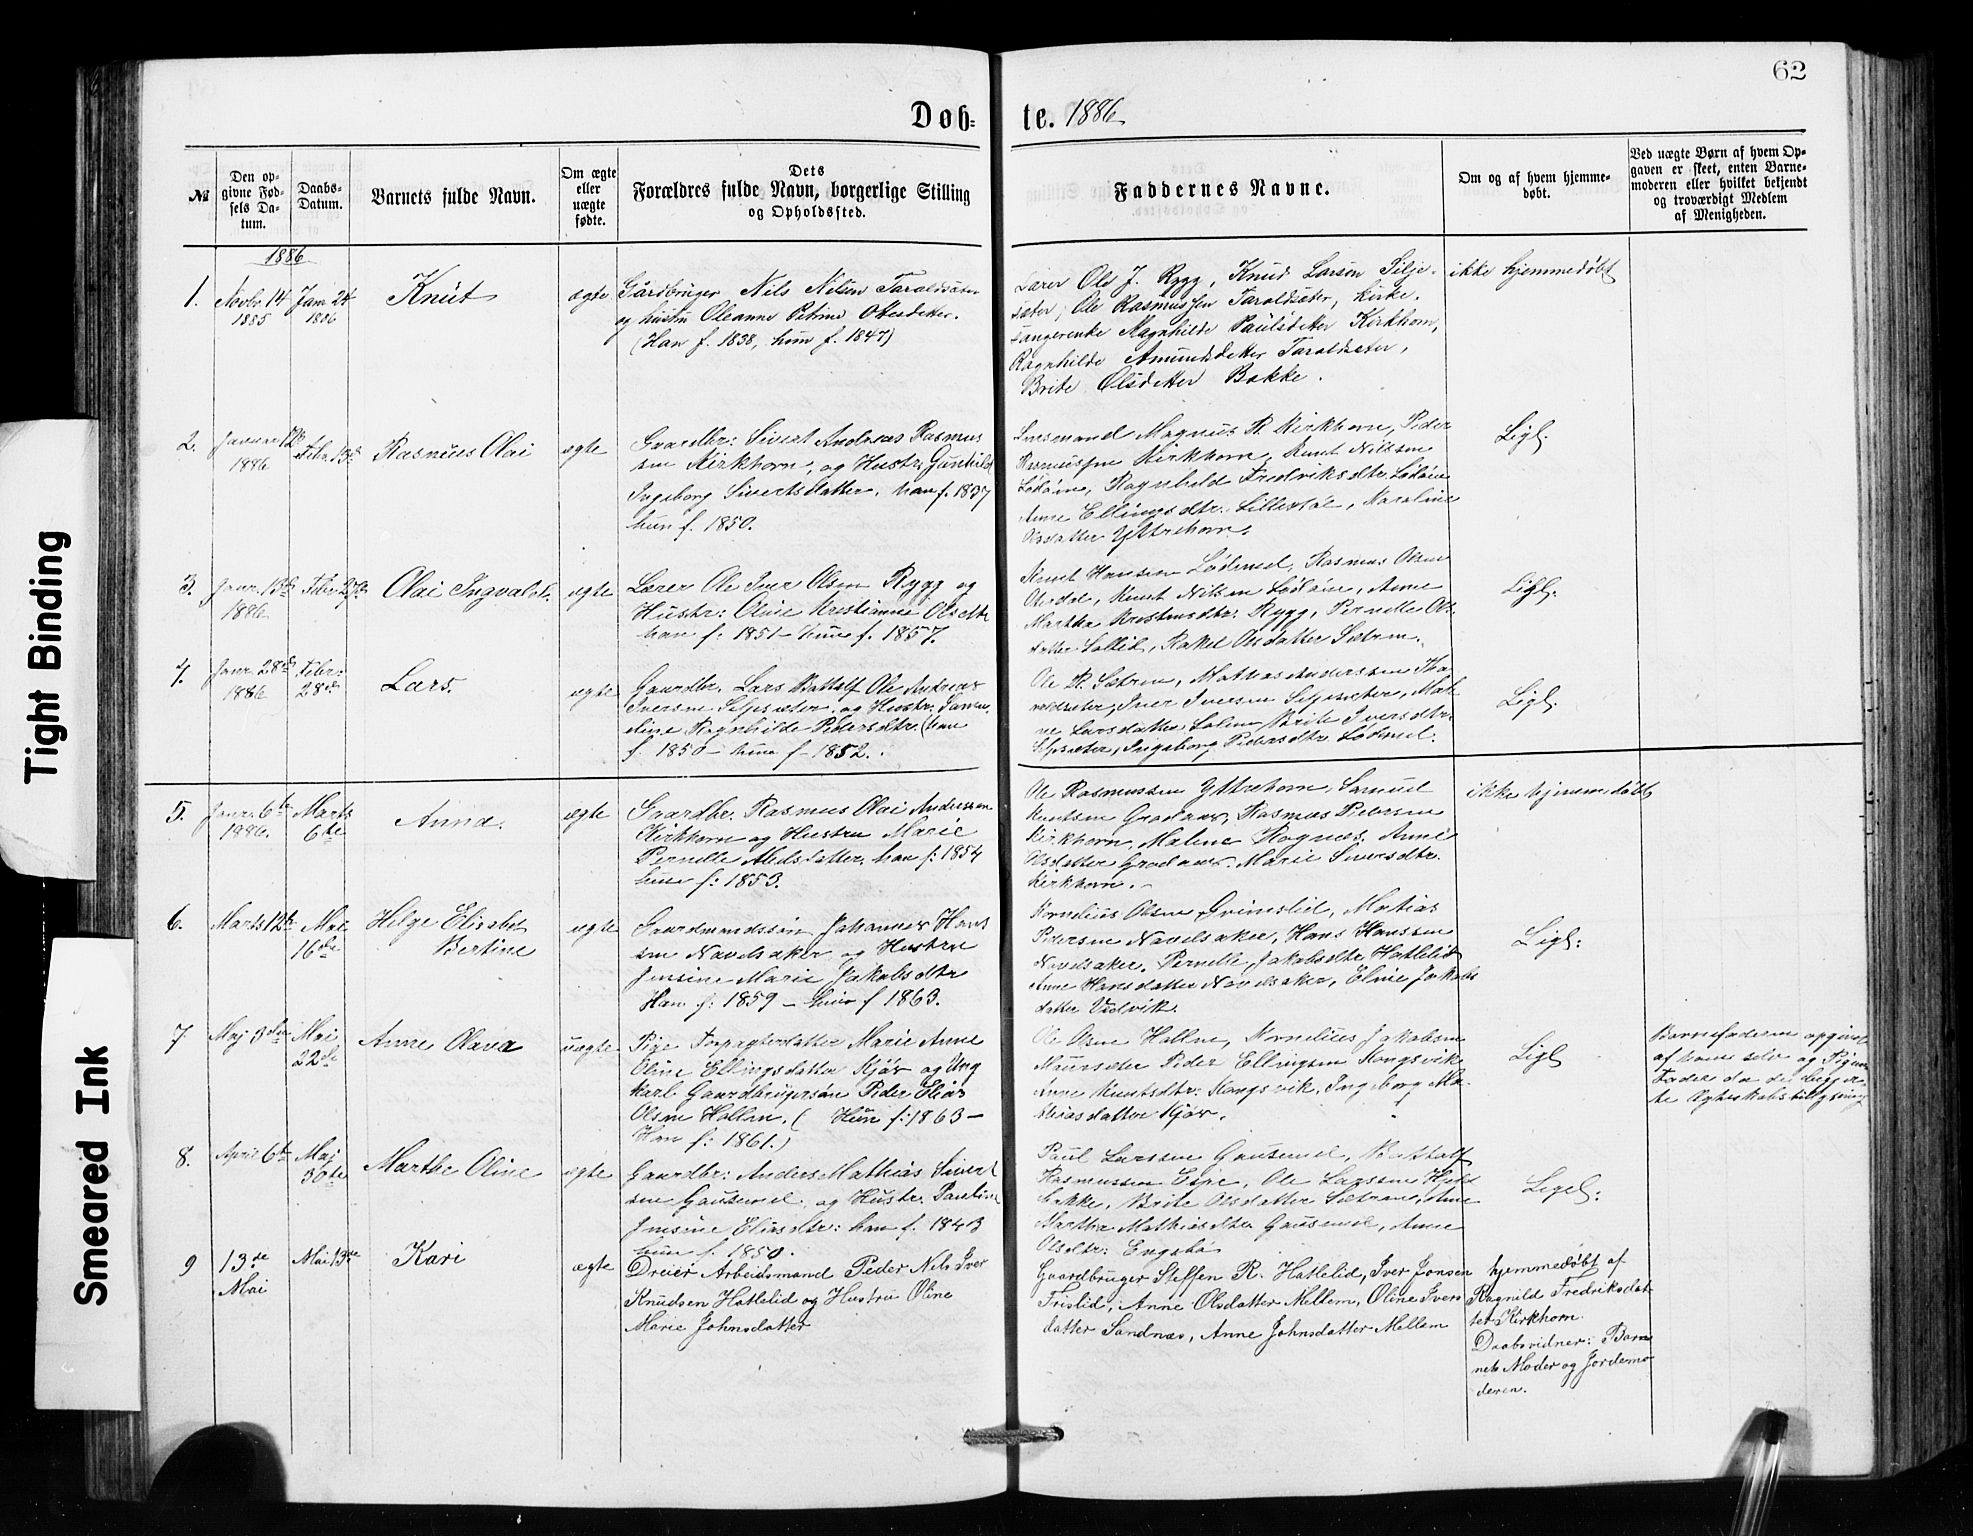 62
Døb=
te. 1886
№
Den op-
givne Fød-
sels Da-
tum.
Daabs-
Datum.
Barnets fulde Navn.
Om ægte
eller
uægte
fødte.
Dets
Forældres fulde Navn, borgerlige Stilling
og Opholdssted.
Faddernes Navne.
Om og af hvem hjemme-
døbt.
Ved uægte Børn af hvem Op-
gaven er skeet, enten Barne-
moderen eller hvilket bekjendt
og troværdigt Medlem
af Menigheden.
1886
1.
Novbr. 14
1885
Jan. 24
1886
Knut
ægte
Gårdbruger Nils Nilsen Taraldsæter
og hustru Oleanne Petrine Ottesdatter.
(Han f. 1838, hun f. 1847)
Lærer Ole J. Rygg, Knud Larsen Silje-
sæter, Ole Rasmussen Taraldsæter, Kirke-
sangerenke Magnhilde Paulsdatter Kirkhorn,
Ragnhilde Amundsdatter Taraldsæter,
Brite Olsdatter Bakke.
ikke hjemmedøbt
2.
Januar 12
1886
Febr. 13
Rasmus Olai
ægte
Gaardbr: Sivert Andreas Rasmus
sen Kirkhorn, og Hustr. Gunhild
Ingeborg Sivertsdatter. han f. 1837
hun f. 1850.
Lensmand Magnus R. Kirkhorn, Peder
Rasmussen Kirkhorn, Knut Nilsen
Lødøen, Ragnhild Fredriksdtr. Lødøen
Anne Ellingsdtr.
Olsdatter Yttrehorn.
Ligl.
3.
Janr. 13
1886
Febr. 27
Olai Ingvald.
ægte
Lærer Ole Iver Olsen Rygg og
Hustr: Oline Kristianne Olsdtr
han f: 1851 – hun f. 1857.
Knut Hansen Lødemel, Rasmus Olsen
Knut Nilsen Lødøen, Anne
Martha Rygg, Pernelle Ols-
datter Rakel Olsdatter Sætren.
Ligl.
4.
Janr. 28
1886
Febr.
28
Lars.
ægte
Gaardbr. Lars Battolf Ole Andreas
Iversen Siljesæter, og Hustr. Samu-
eline Ragnhilde Pedersdtr. (han
f. 1850 – hun f – 1852.
Ole R. Sætren, Mathias Anderssen Tha-
raldsæter, Iver Iversen Siljesæter, Mal-
ne Larsdatter Brite Iversdtr.
Siljesæter, Ingeborg Pedersdtr Lødemel.
Ligl.
5.
Janr. 6te
1886.
Marts
6te
Anna.
ægte
Gaardbr. Rasmus Olai Anderssen
Kirkhorn og Hustru Marie
Pernelle Nilsdatter, han f: 1854
hun f: 1853.
Ole Rasmussen Yttrehorn, Samuel
Knutsen Grodaas, Rasmus Pedersen
Kirkhorn, Malene Rognæs. Anne
Olsdatter Grodaas. Marie Siversdtr.
Kirkhorn. –
ikke hjemmedøbt
6.
Marts 12te
Mai
16de
Helge Elisabet
Bertine
ægte
Gaardmandssøn Johannes Hans
sen Navelsaker og Hustru
Jensine Marie Jakobsdtr
Han f: 1859 – hun f 1863.
Kornelius Olsen Grimslid, Matias
Pedersen Navelsaker, Hans Hanssen
Navelsaker. Pernelle Jakobsdtr Hatlelid
Anne Hansdatter Navelsaker, Eline Jakobs
datter Vedvik.
Ligl:
7
Maj 3die
Mai
22de
Anne Olava
uægte
Pige Forpagterdatter Marie Anne
Oline Ellingsdatter Kjøs og Ung
karl Gaardbrugersøn Peder Elias
Olsen Hallen, ( Hun f: 1863 –
Han f: 1861.)
Ole Olsen Hallen, Kornelius Jakobsen
Maurseter Peder Ellingsen Kongsvik
Anne Knutsdtr: Kongsvik, Ingeborg Ma-
thiasdatter Kjøs.
Ligl
Barnefaderen opgivet
af hame selv og Pigens
Fader da de
te Ægteskabsbelysning
8.
April 6te
Maj
30te
Marthe Oline
ægte
Gaardbr: Anders Mathias Sivert
sen Gausemel, og Hustr. Pauline
Jensine Eliasdtr: han f. 1843
hun f. 1850.
Paul Larssen Gausemel, Battolf
Rasmussen Espe, Ole Larssen Hjel
bakke, Brite Olsdatter Sætren, Ane
Martha Mathiasdtr Gausemel, Anne
Olsdtr: Engebø
Ligel:
9
13de
Mai
Mai 13de
Kari
ægte
Dreier Arbeidsmand Peder Nils Iver
Knudsen Hatlelid og Hustru Oline
Marie Johnsdatter
Gaardbruger Steffen R. Hatlelid, Iver Jonsen
Frislid, Anne Olsdatter Mellem, Oline Ivers
datter Sandnæs, Anne Johnsdatter Mellem
hjemmedøbt af
Ragnild Fredriksdat-
ter Kirkhorn.
Daabsvidner: Bar-
nets Moder og Jordemo-
deren.
Tight Binding
Smeared Ink